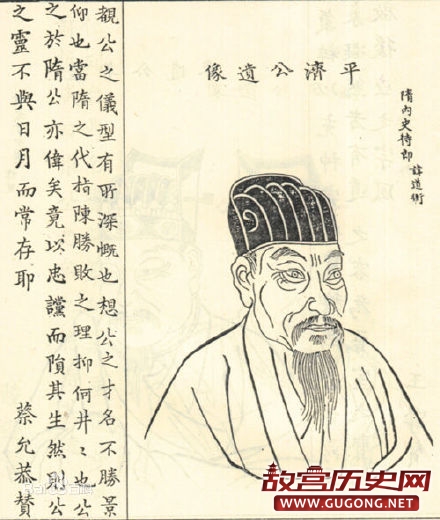 隋內史侍郎 諱道衡
平濟公遺像
觀公之儀型有所深慨也想公之才名不勝景
仰也當隋之代指陳勝敗之理抑何井々也公
之於隋公亦偉矣竟以忠讜而隕其生然則公
之靈不與日月而常存耶 蔡允恭贊
故宫历史网
WWW.GUGONG.NET